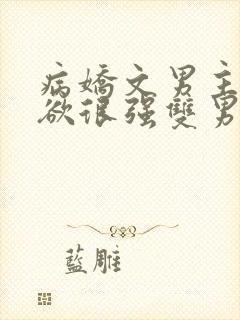 病嬌文男主
欲很强雙男
藍雕